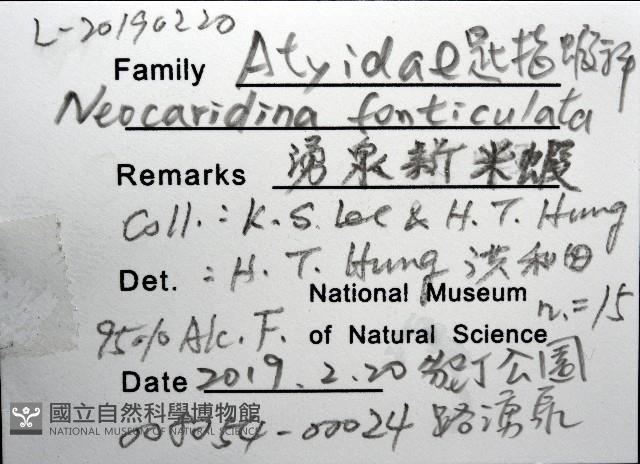 L-20190220
Family Atyidae 匙指蝦科
Neocaridina fonticulata
Remarks 湧泉新米蝦
Coll.: K.S. Lee & H.T. Hung
Det. : H.T. Hung 洪和田
National Museum n.=15
95% Alc. F. of Natural Science
Date 2019.2.20 墾丁公園
國立自然科學博物館
NATIONAL MUSEUM OF NATURAL SCIENCE
-00024 路湧泉